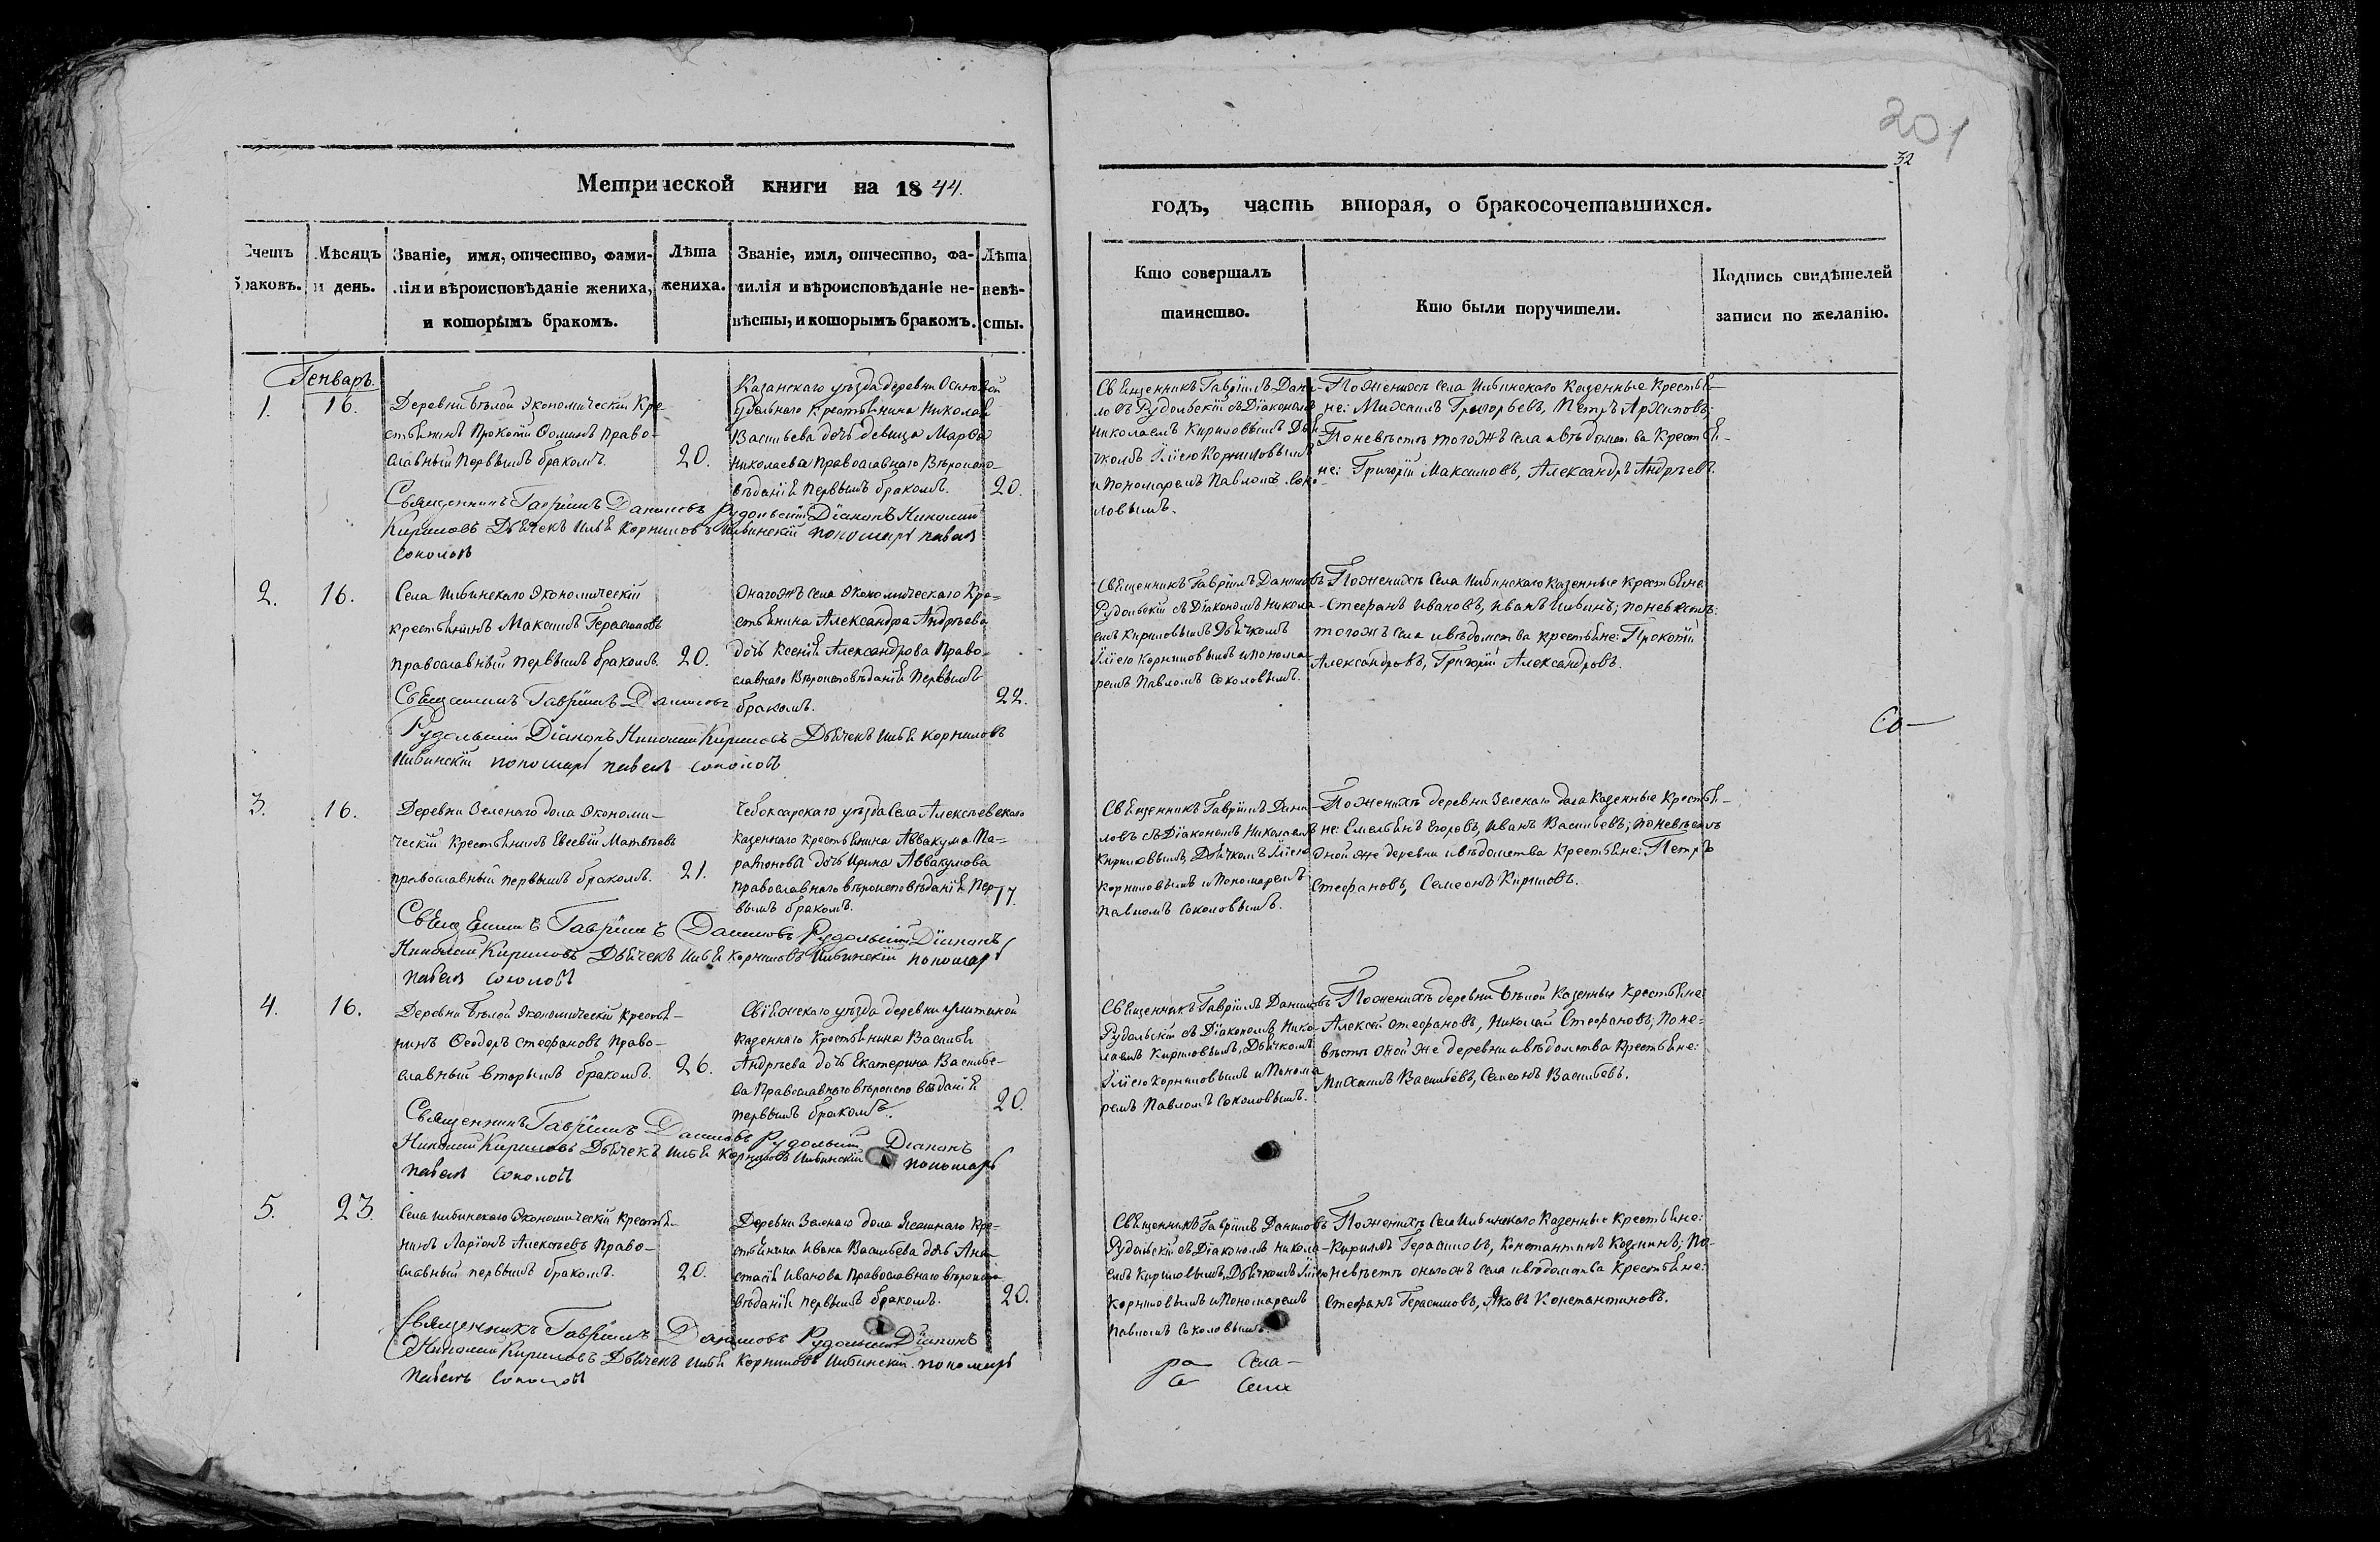 201
32
Метрической книги на 1844.
годъ, часть вторая, о бракосочетавшихся.
Счетъ браковъ.
Мѣсяцъ и день.
Званіе, имя, отчество, фами-
лія и вѣроисповѣданіе жениха,
и которымъ бракомъ.
Лѣта
жениха.
Званіе, имя, отчество, фа-
милія и вѣроисповѣданіе не-
вѣсты, и которымъ бракомъ.
Лѣта
невѣ-
сты.
Кто совершалъ
таинство.
Кто были поручители.
Подпись свидѣтелей
записи по желанію.
Генварь.
1.
16.
Деревни Бѣлой Экономическій Кре-
стьянинъ Прокопій Ѳоминъ право-
славный первымъ бракомъ.
20.
Казанскаго уѣзда деревни Осиновой
удѣльнаго Крестьянина Николая
Васильева дочь девица Марѳа
Николаева Православнаго Вѣроиспо-
вѣданія первымъ бракомъ.
20.
Священникъ Гавріилъ Даниловъ Рудольскій Діаконъ Николай
Кириловъ Дьячекъ Илья Корниловъ Ильинскій пономарь павелъ
Соколовъ
Священникъ Гавріилъ Дани-
ловъ Рудольскій съ Діакономъ
Николаемъ Кириловымъ Дья-
чкомъ Іліею Корниловымъ
и Пономаремъ Павломъ Соко-
ловымъ.
По женихѣ села Ильинскаго Казенные Крестья-
не: Михаилъ Григорьевъ, Петръ Архиповъ:
По невѣстѣ тогожъ села и вѣдомства Крестья-
не: Григорій Максимовъ, Александръ Андрѣевъ.
2.
16.
Села Ильинскаго Экономическій
крестьянинъ Максимъ Герасимовъ
православный первымъ бракомъ.
20.
Онагожъ села Экономическаго Кре-
стьянина Александра Андрѣева
дочь Ксенія Александрова Право-
славнаго Вѣроисповѣданія Первымъ
бракомъ.
22.
Священникъ Гавріилъ Даниловъ
Рудольскій Діаконъ Николай Кириловъ Дьячекъ Илья Корниловъ
Ильинскій пономарь павелъ соколовъ
Священникъ Гавріилъ Даниловъ
Рудольскій съ Діакономъ Никола-
емъ Кириловымъ Дьячкомъ
Іліею Корниловымъ и Понома-
ремъ Павломъ Соколовымъ.
По женихѣ Села Ильинскаго Казенные Крестьяне
Стефанъ Ивановъ, Иванъ Ильинъ; по невѣстѣ:
тогожъ села и вѣдомства крестьяне: Прокопій
Александровъ, Григорій Александровъ.
Со—
3.
16.
Деревни Зеленаго дола Экономи-
ческій Крестьянинъ Евсевій Матвѣевъ
православный первымъ бракомъ.
21.
Чебоксарскаго уѣзда Села Алексѣевскаго
казеннаго крестьянина Аввакума Па-
рамонова дочь Ирина Аввакумова
православнаго вѣроисповѣданія Пер-
вымъ бракомъ.
17.
Священникъ Гавріилъ Даниловъ Рудольскій Діаконъ
Николай Кириловъ Дьячекъ Илья Корниловъ Ильинскій пономарь
павелъ соколовъ
Священникъ Гавріилъ Дани-
ловъ съ Діакономъ Николаемъ
Кириловымъ, Дьячкомъ Іліею
Корниловымъ и Пономаремъ
Павломъ Соколовымъ.
По женихѣ деревни Зеленаго дола Казенные Крестья-
не: Емельянъ Егоровъ, Иванъ Васильевъ; по невѣстѣ
оной же деревни и вѣдомства Крестьяне: Петръ
Стефановъ, Симеонъ Кириловъ.
4.
16.
Деревни Бѣлой Экономическій Крестья-
нинъ Ѳеодоръ Стефановъ Право-
славный вторымъ бракомъ.
26.
Свіяжскаго уѣзда деревни
казеннаго Крестьянина Василья
Андрѣева дочь Екатерина Василье-
ва Православнаго вѣроисповѣданія
первымъ бракомъ.
20.
Священникъ Гавріилъ Даниловъ Рудольскій Діаконъ
Николай Кириловъ Дьячекъ Илья Корниловъ Ильинскій пономарь
павелъ соколовъ
Священникъ Гавріилъ Даниловъ
Рудольскій съ Діакономъ Нико-
лаемъ Кириловымъ, Дьячкомъ
Іліею Корниловымъ и Понома-
ремъ Павломъ Соколовымъ.
По женихѣ деревни Бѣлой Казенные Крестьяне:
Алексѣй Стефановъ, Николай Стефановъ; по не-
вѣстѣ оной же деревни и вѣдомства Крестьяне:
Михаилъ Васильевъ, Симеонъ Васильевъ.
5.
23.
Села Ильинскаго Экономическій Крестья-
нинъ Ларіонъ Алексѣевъ Право-
славный первымъ бракомъ.
20.
Деревни Зеленаго дола Ясашнаго Кре-
стьянина Ивана Васильева дочь Ана-
стасія Иванова Православнаго вѣроиспо-
вѣданія первымъ бракомъ.
20.
Священникъ Гавріилъ Даниловъ Рудольскій Діаконъ
Николай Кириловъ Дьячекъ Илья Корниловъ Ильинскій пономарь
павелъ Соколовъ
Священникъ Гавріилъ Даниловъ
Рудольскій съ Діакономъ Никола-
емъ Кириловымъ, Дьячкомъ Іліею
Корниловымъ и Пономаремъ
Павломъ Соколовымъ.
По женихѣ Села Ильинскаго Казенные Крестьяне:
Кирилъ Герасимовъ, Константинъ Козминъ; По
невѣстѣ онагожъ села и вѣдомства Крестьяне:
Стефанъ Герасимовъ, Яковъ Константиновъ.
ра Села—